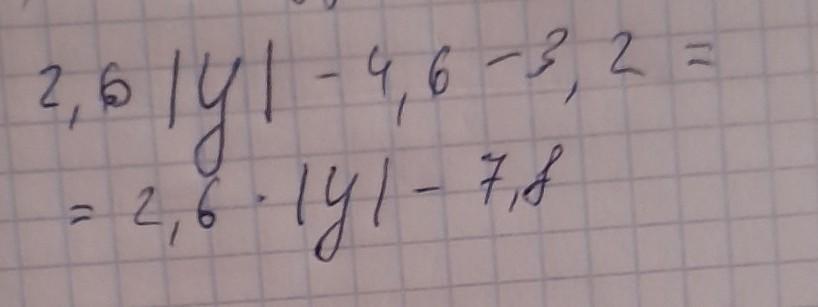 2,6 |y| - 4,6 - 3,2 =
= 2,6 · |y| - 7,8